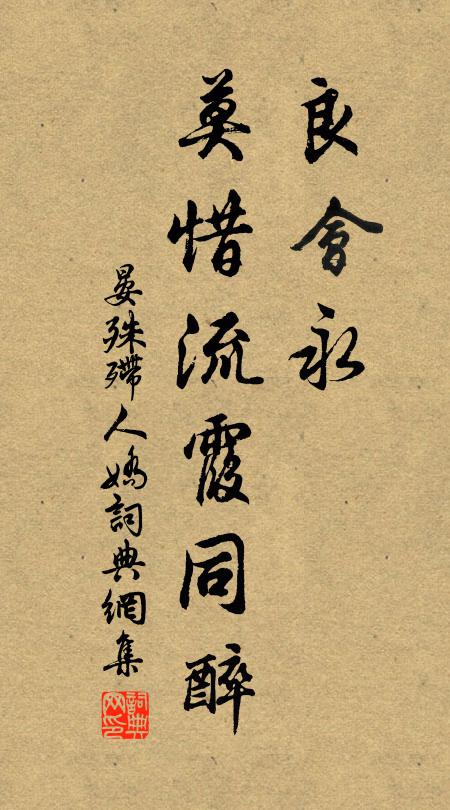 良會永
莫惜流霞同醉
晏殊殢人嬌詞典網集
詞典网印